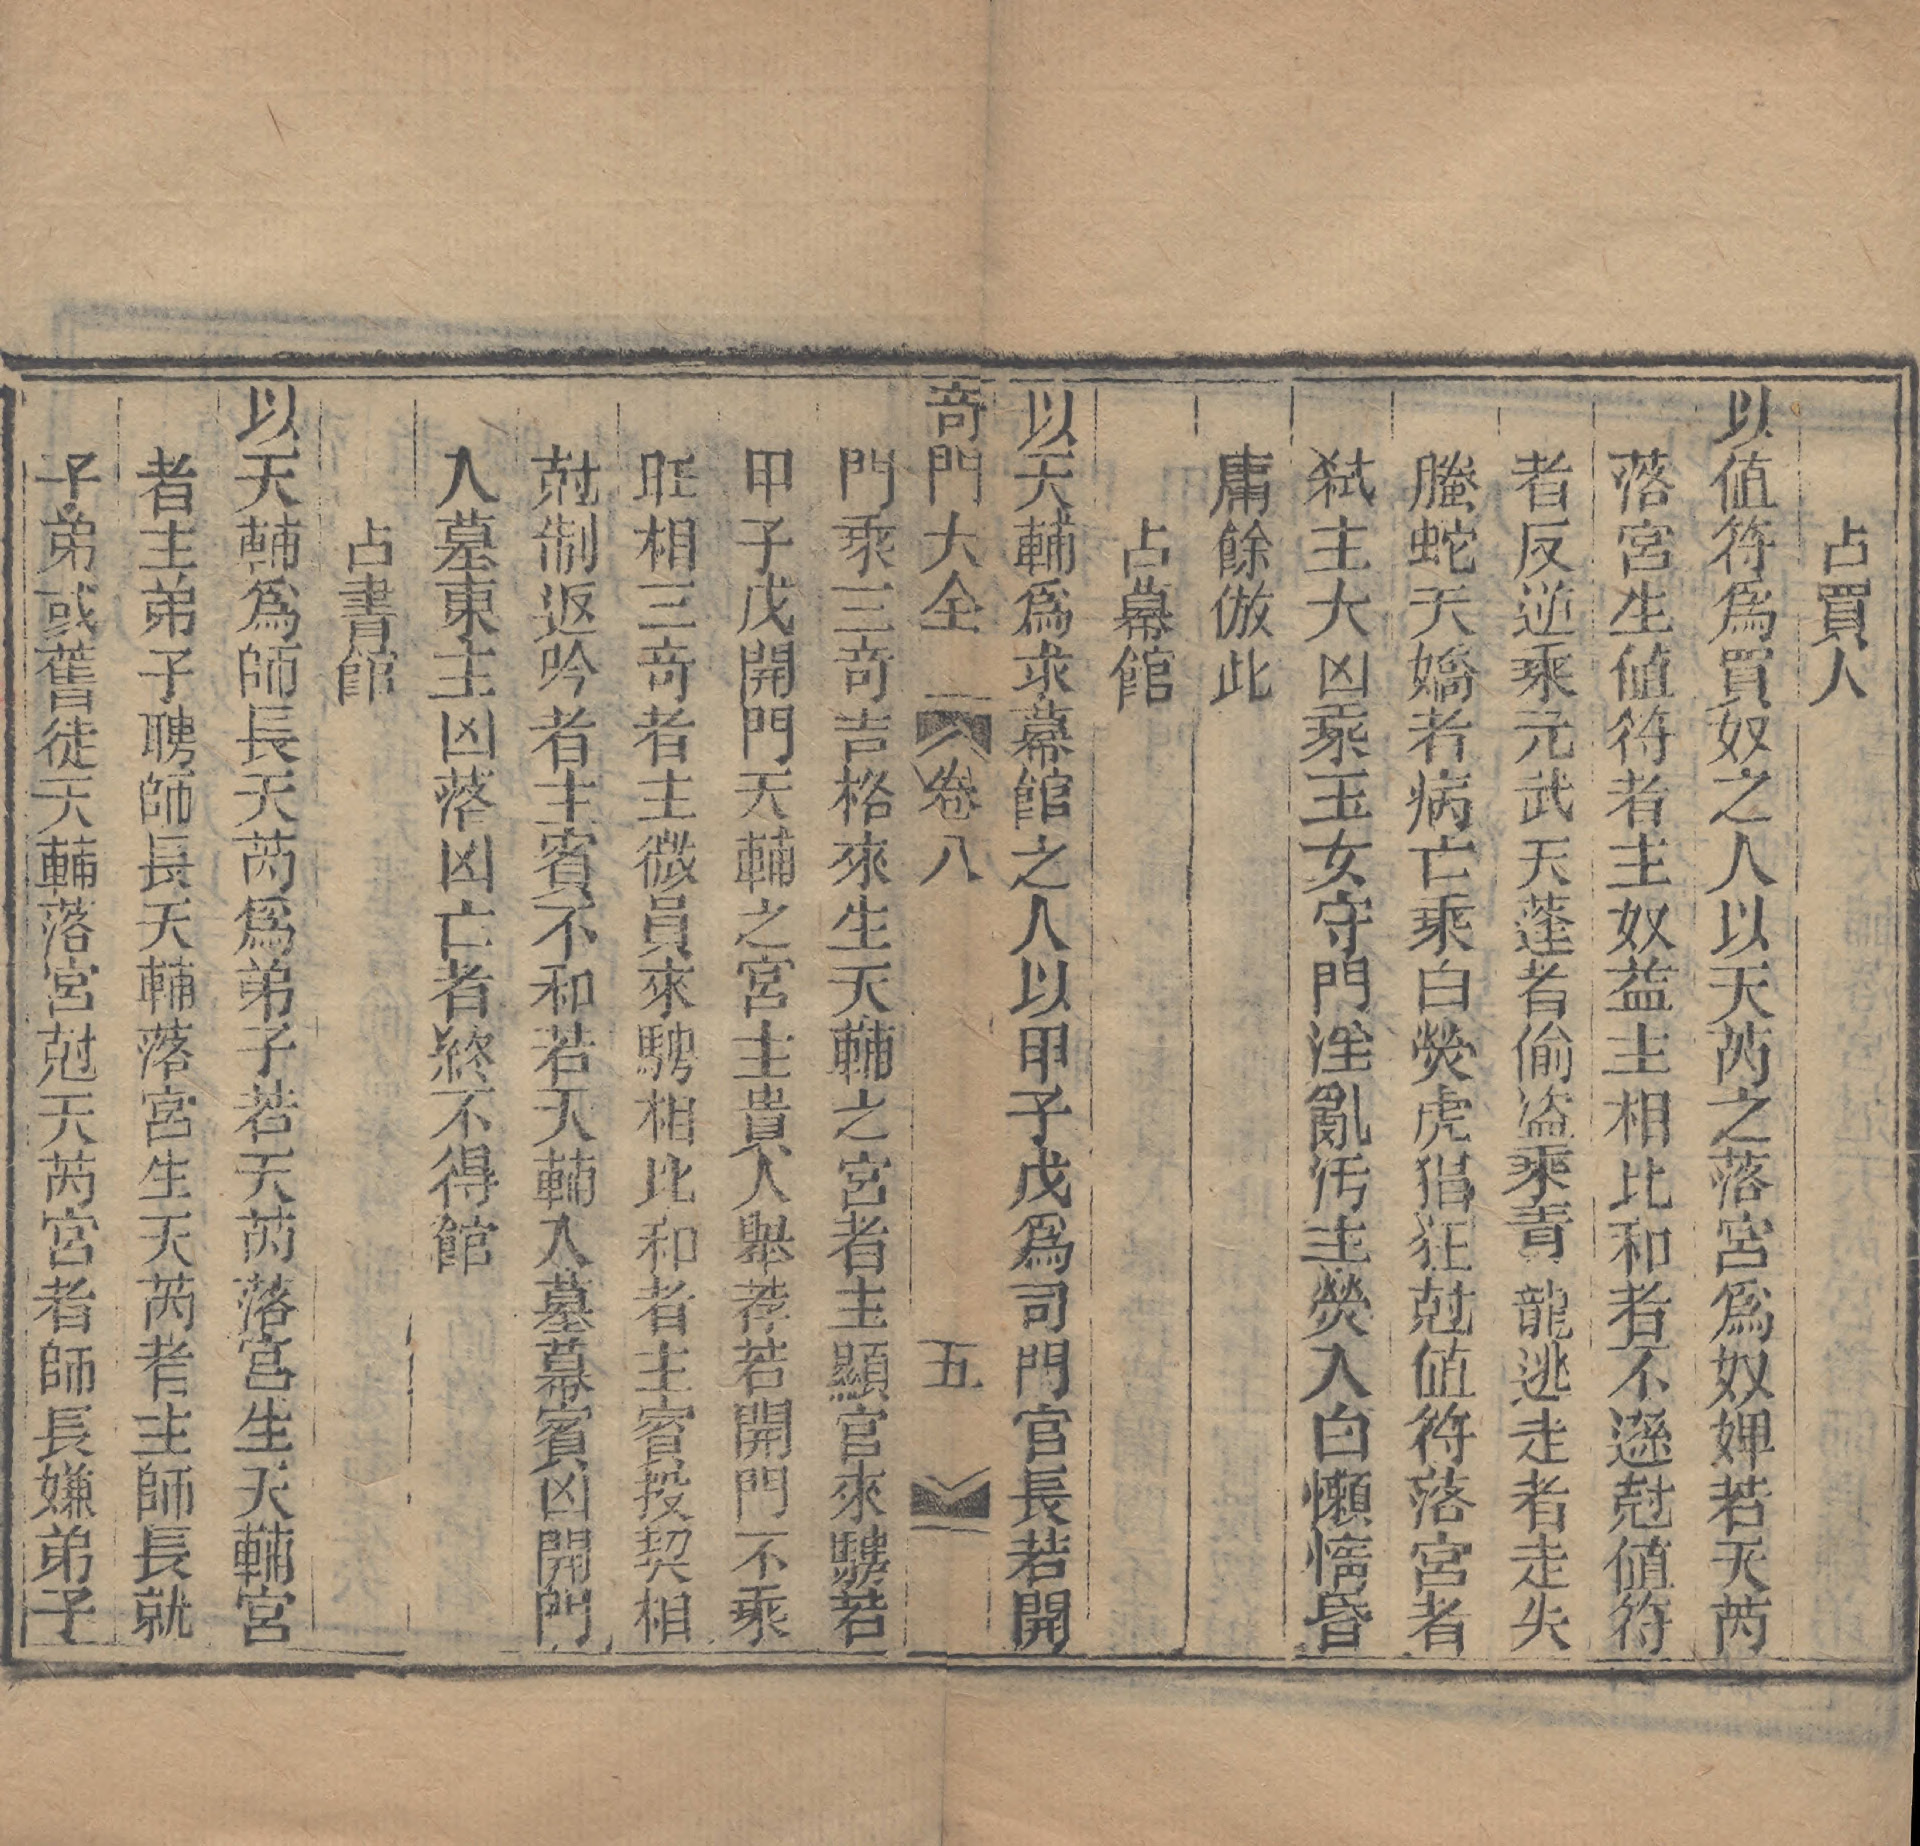 占買人
以值符爲買奴之人以天芮之落宮爲奴婢若天芮
落宮生値符者主奴益主相比和者不遜尅値符
者反逆乘元武天蓬者偷盗乘青龍逃走者走失
螣蛇天嬌者病亡乘白熒虎猖狂尅値符落宮者
弑主大凶乘玉女守門淫亂汚主熒入白懶惰昏
庸餘倣此
占幕館
以天輔爲求幕館之人以甲子戊爲司門官長若開
竒門大全
卷八
五
門乘三竒吉格來生天輔之宮者主顯官來騁若
甲子戊開門天輔之宮主貴人舉荐若開門不乘
旺相三竒者主微員來騁相比和者主賓投契相
尅制返吟者主賓不和若天輔入墓幕賓凶開門
入墓東主凶落凶亡者終不得館
占書館
以天輔爲師長天芮爲弟子若天芮落宮生天輔宮
者主弟子聘師長天輔落宮生天芮者主師長就
子弟或舊徒天輔落宮尅天芮宮者師長嫌弟子